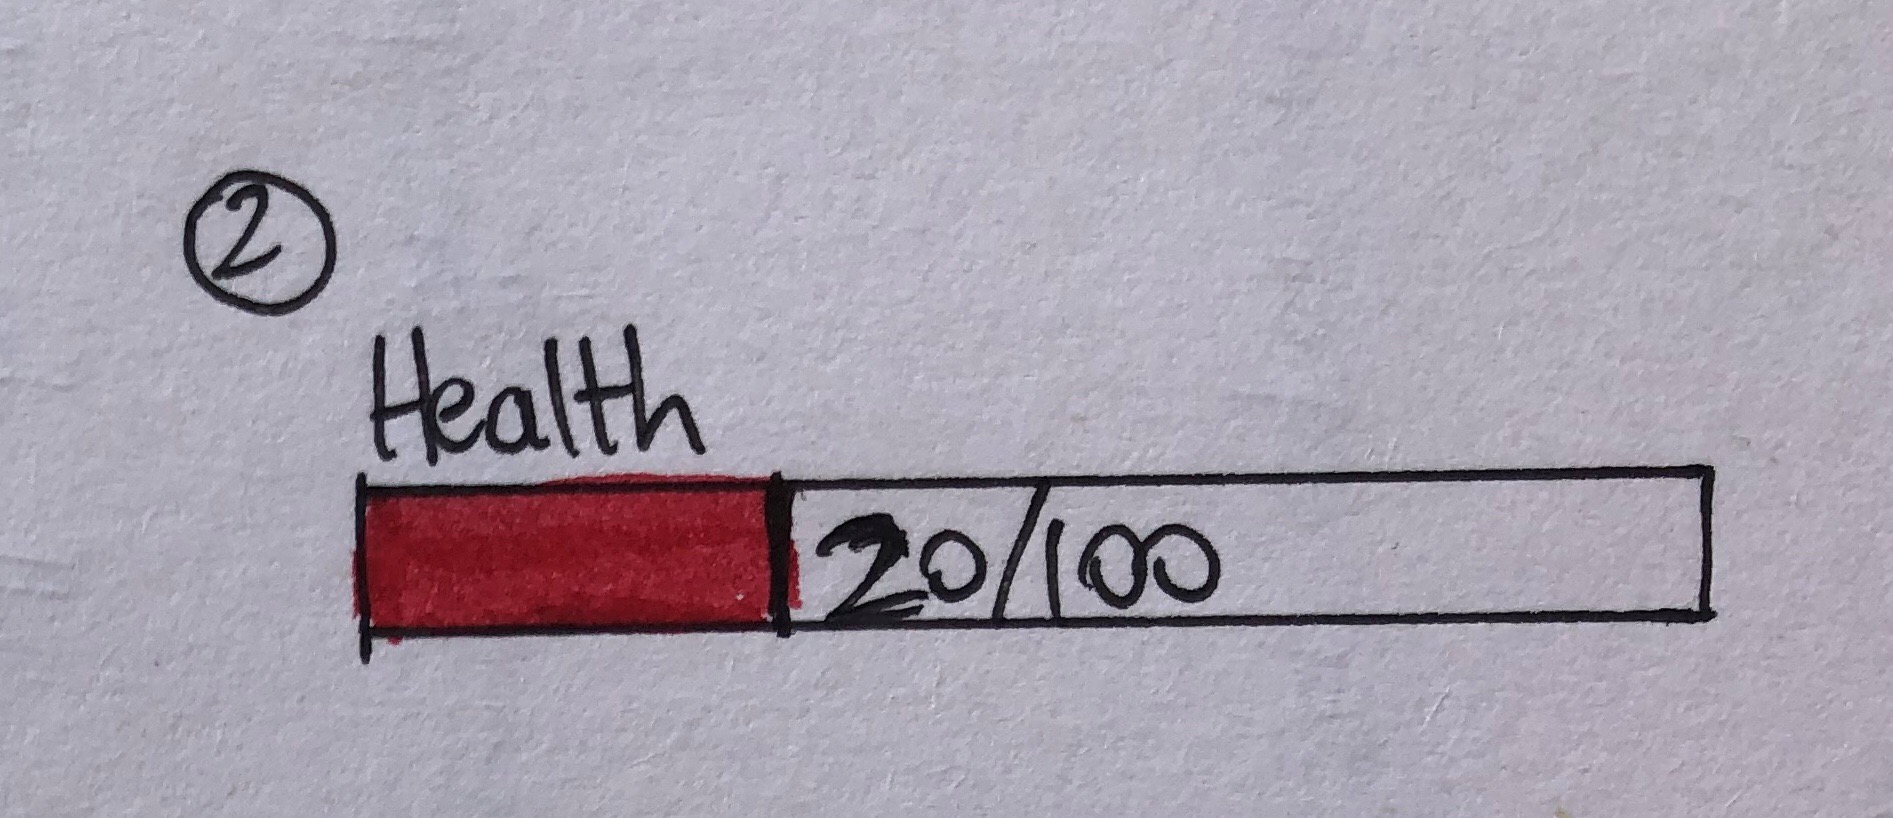 2
Health
20/100